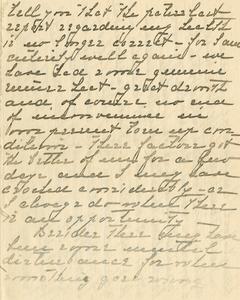 tell you that the
report regarding my health
is no longer correct - for I am
entirely well again - we
have had some genuine
winter heat - great drouth
and, of course, no end
of inconvenience in
our present torn up con
dition - These factors got
the better of me for a few
days and I may have
crocked considerably - as
I always do when there
is an opportunity
Besides there may have
been some mental
disturbance for when
something goes wrong